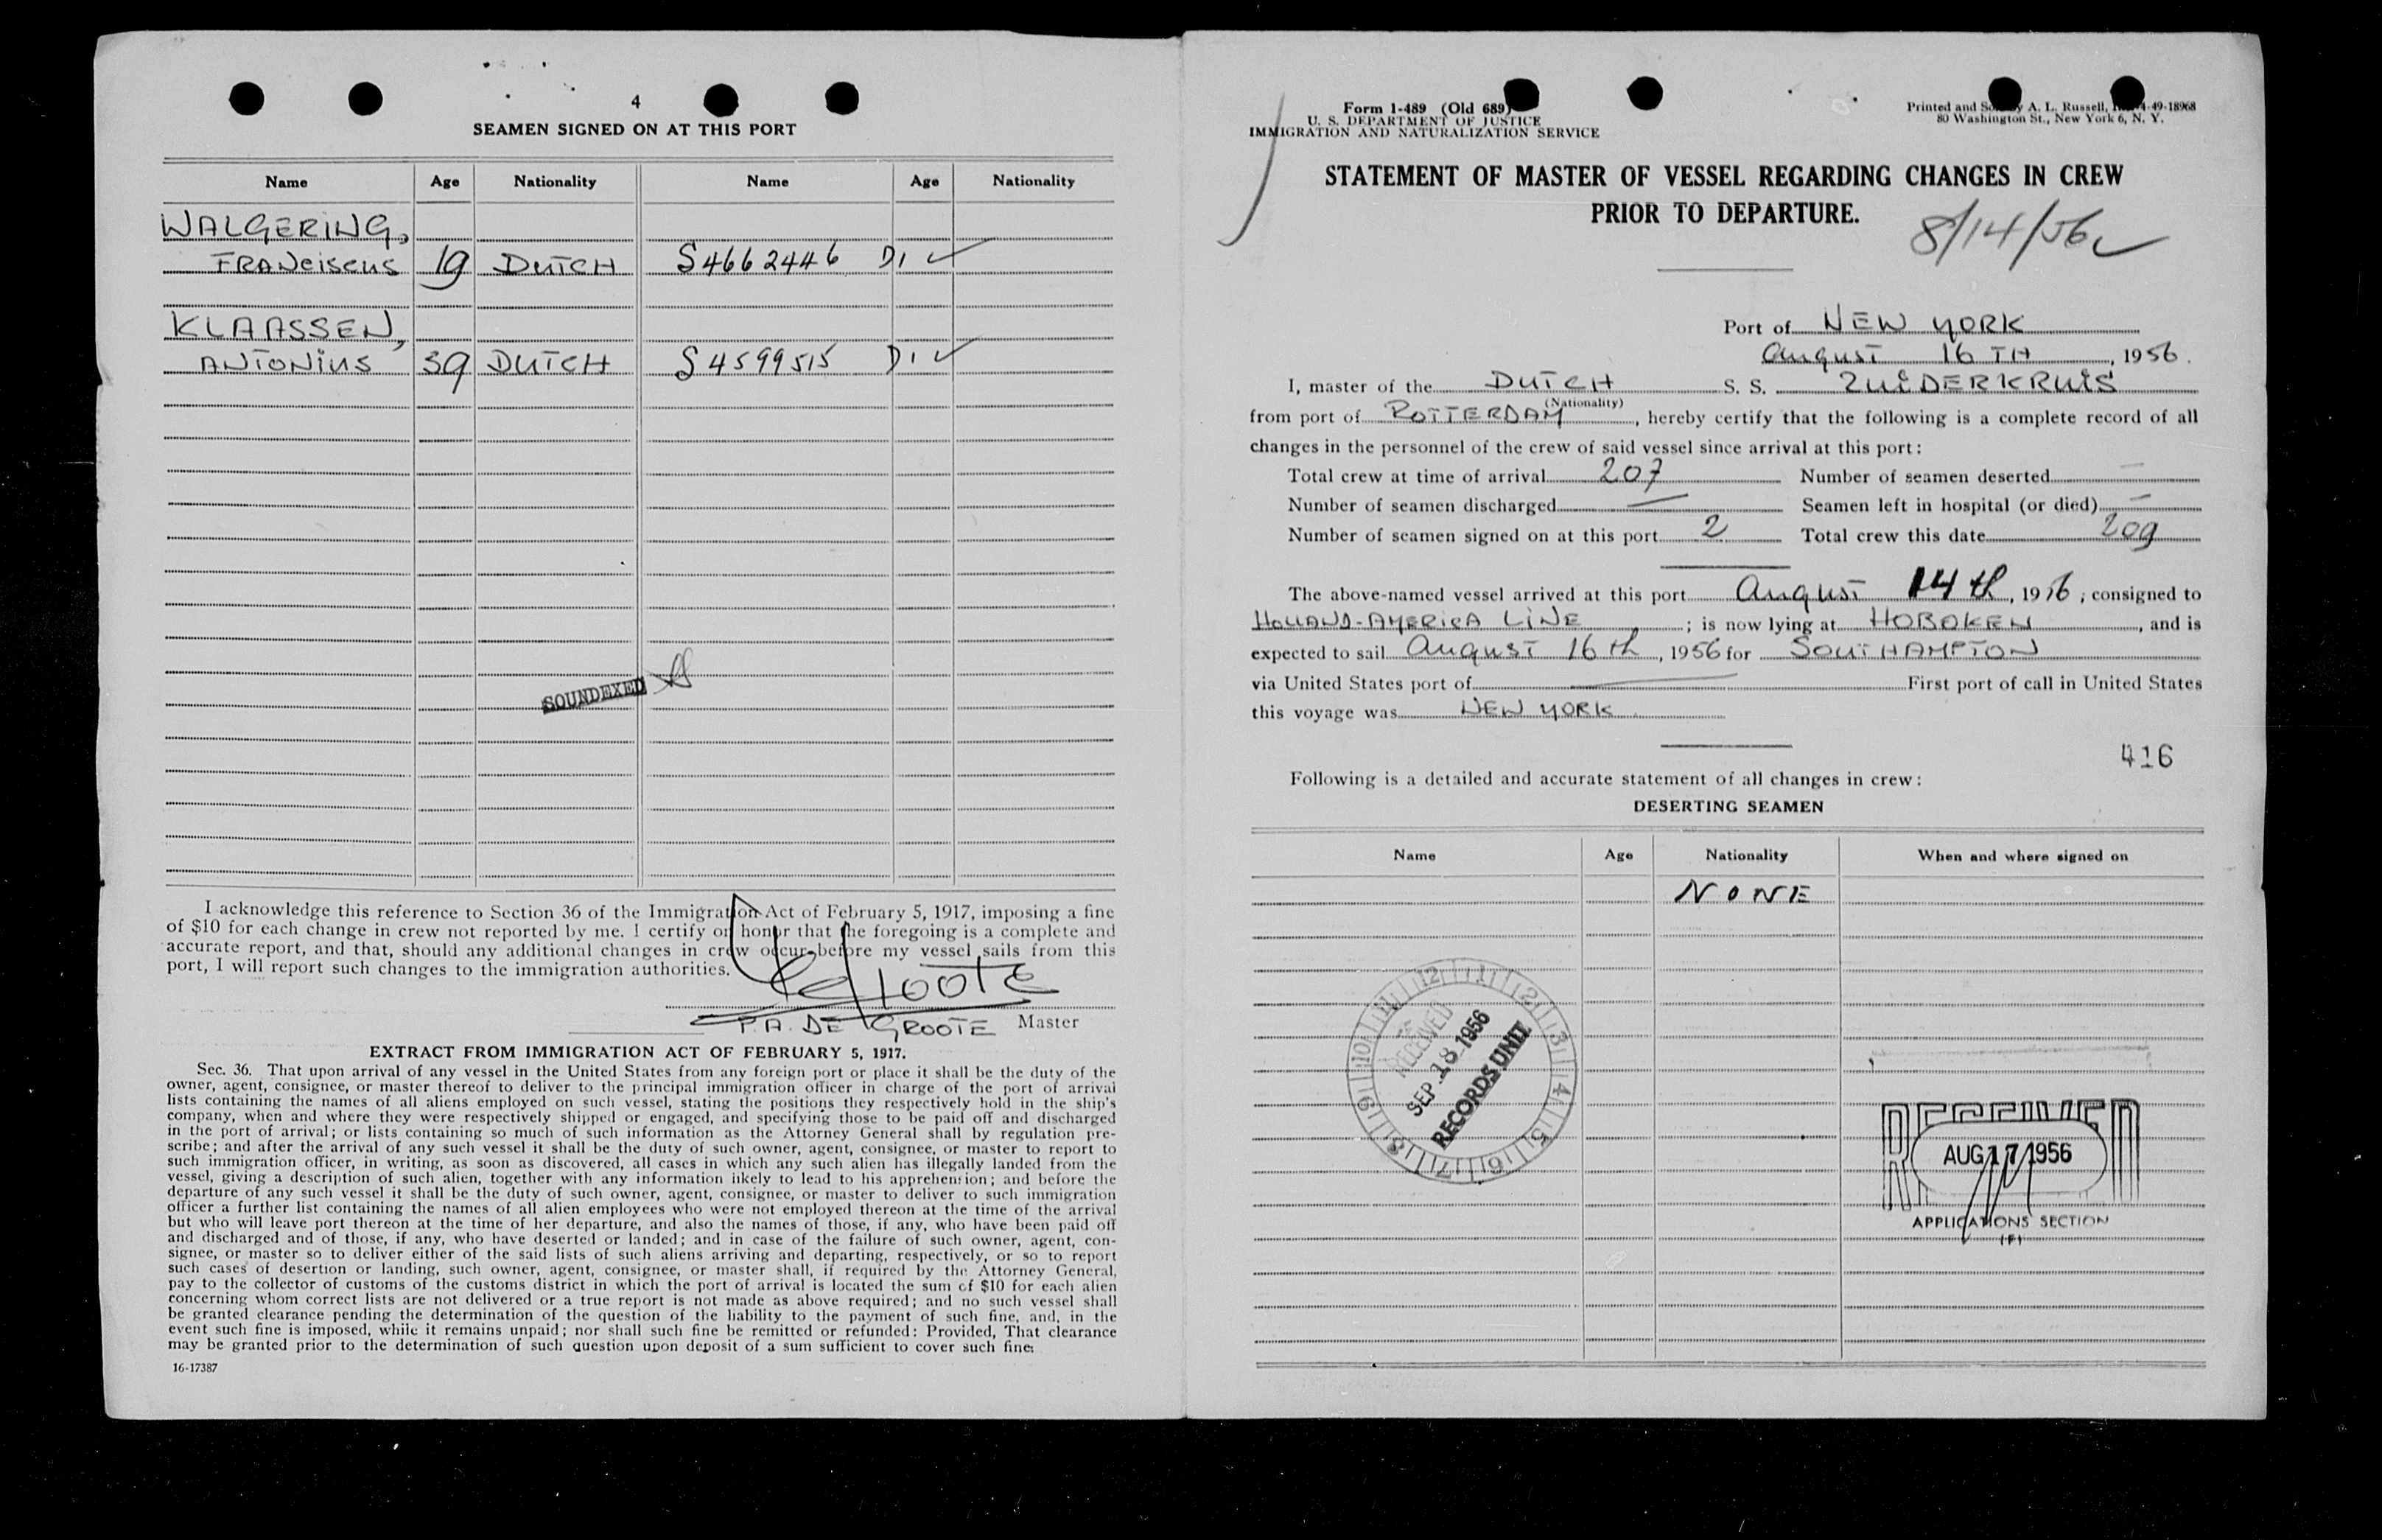 4
SEAMEN SIGNED ON AT THIS PORT
Name Age Nationality Name Age Nationality
WALGERING,
FRANciscus 19 DUTCH S4662446 D1 ✓
KLAASSEN,
ANTONIUS 39 DUTCH S4599515 D1 ✓
SOUNDEXED
I acknowledge this reference to Section 36 of the Immigration Act of February 5, 1917, imposing a fine
of $10 for each change in crew not reported by me. I certify on honor that the foregoing is a complete and
accurate report, and that, should any additional changes in crew occur before my vessel sails from this
port, I will report such changes to the immigration authorities.
P.A. DE GROOTE Master
EXTRACT FROM IMMIGRATION ACT OF FEBRUARY 5, 1917.
Sec. 36. That upon arrival of any vessel in the United States from any foreign port or place it shall be the duty of the
owner, agent, consignee, or master thereof to deliver to the principal immigration officer in charge of the port of arrival
lists containing the names of all aliens employed on such vessel, stating the positions they respectively hold in the ship's
company, when and where they were respectively shipped or engaged, and specifying those to be paid off and discharged
in the port of arrival; or lists containing so much of such information as the Attorney General shall by regulation pre-
scribe; and after the arrival of any such vessel it shall be the duty of such owner, agent, consignee, or master to report to
such immigration officer, in writing, as soon as discovered, all cases in which any such alien has illegally landed from the
vessel, giving a description of such alien, together with any information likely to lead to his apprehension; and before the
departure of any such vessel it shall be the duty of such owner, agent, consignee, or master to deliver to such immigration
officer a further list containing the names of all alien employees who were not employed thereon at the time of the arrival
but who will leave port thereon at the time of her departure, and also the names of those, if any, who have been paid off
and discharged and of those, if any, who have deserted or landed; and in case of the failure of such owner, agent, con-
signee, or master so to deliver either of the said lists of such aliens arriving and departing, respectively, or so to report
such cases of desertion or landing, such owner, agent, consignee, or master shall, if required by the Attorney General,
pay to the collector of customs of the customs district in which the port of arrival is located the sum of $10 for each alien
concerning whom correct lists are not delivered or a true report is not made as above required; and no such vessel shall
be granted clearance pending the determination of the question of the liability to the payment of such fine, and, in the
event such fine is imposed, while it remains unpaid; nor shall such fine be remitted or refunded: Provided, That clearance
may be granted prior to the determination of such question upon deposit of a sum sufficient to cover such fine.
16-17387
Form 1-489 (Old 689)
U. S. DEPARTMENT OF JUSTICE
IMMIGRATION AND NATURALIZATION SERVICE
Printed and Sold by A. L. Russell, 4-49-18968
80 Washington St., New York 6, N. Y.
STATEMENT OF MASTER OF VESSEL REGARDING CHANGES IN CREW
PRIOR TO DEPARTURE.
8/14/56 ✓
Port of NEW YORK
August 16 TH, 1956.
I, master of the DUTCH S. S. ZUIDERKRUIS
(Nationality)
from port of ROTTERDAM, hereby certify that the following is a complete record of all
changes in the personnel of the crew of said vessel since arrival at this port:
Total crew at time of arrival 207 Number of seamen deserted —
Number of seamen discharged — Seamen left in hospital (or died) —
Number of seamen signed on at this port 2 Total crew this date 209
The above-named vessel arrived at this port August 14th, 1956; consigned to
HOLLAND-AMERICA LINE; is now lying at HOBOKEN, and is
expected to sail August 16th, 1956 for SOUTHAMPTON
via United States port of — First port of call in United States
this voyage was NEW YORK
416
Following is a detailed and accurate statement of all changes in crew:
DESERTING SEAMEN
Name Age Nationality When and where signed on
NONE
12 1 2 3 4 5 6 7 8 9 10 11
RECEIVED
SEP 18 1956
RECORDS UNIT
RECEIVED
AUG 17 1956
APPLICATIONS SECTION
(F)